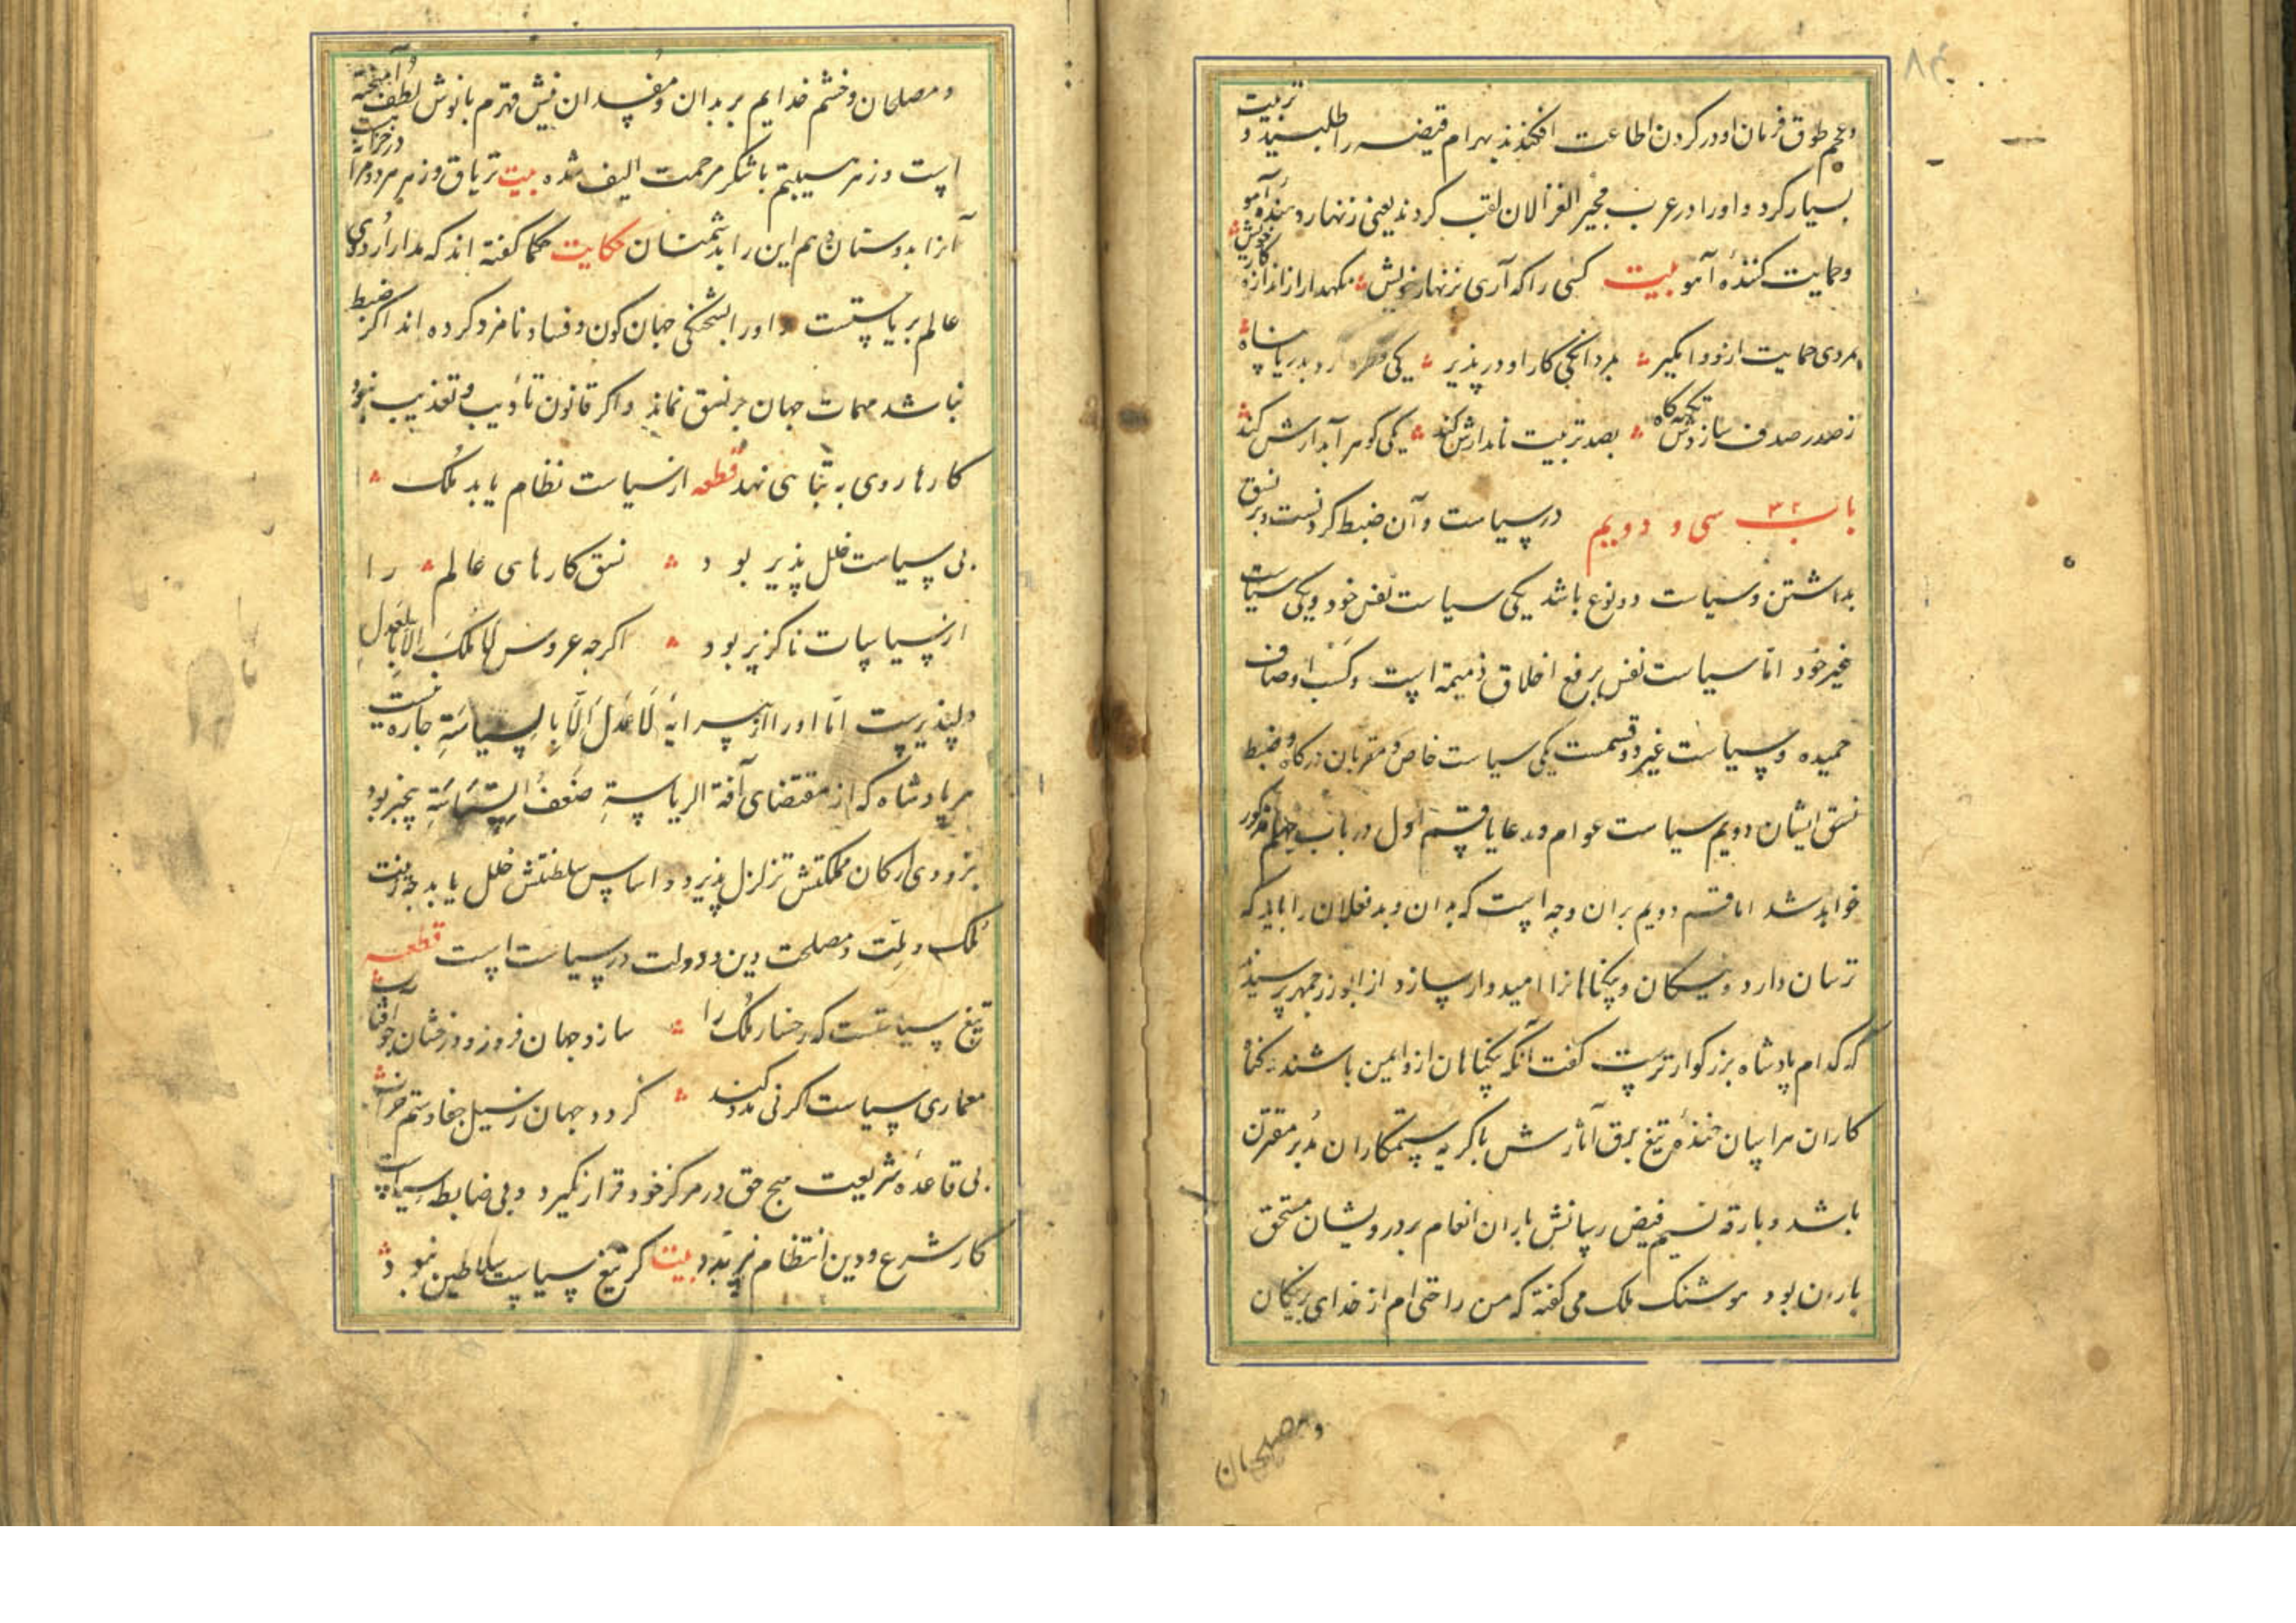 وعجم طوق فرمان او در کردن اطاعت افکندند بهرام قبیضه را طلبید و تربیت
بسیار کرد و او را در عرب مجیر الغزالان لقب کردند یعنی زنهار دهنده آهو
وحمایت کننده آهو بیت کسی را که آری بزنهار خویش نکهدار از اندازه کار خویش
بمردی حمایت ازو وامکیر بمردانکی کار او در پذیر یکی قطره آرد بدریا پناه
ز صدر صدف سازدش تکیه کاه بصد تربیت نامدارش کند یکی کوهر آبدارش کند
باب ۳۲ سی و دویم در سیاست وآن ضبط کردنست وبر نسق
بداشتن وسیاست دو نوع باشد یکی سیاست نفس خود ویکی سیاست
غیر خود اما سیاست نفس برفع اخلاق ذمیمه است وکسب اوصاف
حمیده وسیاست غیر دو قسمست یکی سیاست خاص ومقربان درکاه وضبط
نسق ایشان دویم سیاست عوام ورعایا قسم اول در باب چهلم مذکور
خواهد شد اما قسم دویم بران وجه است که بدان وبدفعلان را باید که
ترسان دارد ونیکان وپکناهانرا امیدوار سازد از ابوزرجمهر پرسیدند
که کدام پادشاه بزرکوارترست کفت آنکه بیکناهان ازو ایمن باشند وکناه
کاران هراسان خنده تیغ برق آثارش با کریه ستمکاران مدبر مقترن
باشد وبارقه نسیم فیض رسانش باران انعام بر درویشان مستحق
باران بود هوشنک ملک می کفته که من راحتی ام از خدای بر نیکان
ومصلحان
ومصلحان وخشم خدایم بر بدان ومفسدان نیش قهرم با نوش لطف آمیخته
است وزهر سیاستم با شکر مرحمت الیف شده بیت تریاق وزهر هر دو مرا در خزانه است
آنرا بدوستان دهم این را بدشمنان حکایت حکما کفته اند که مدار اروی
عالم بر سیاستست واو را بشحنکی جهان کون وفساد نامزد کرده اند اکر ضبط
نباشد مهمات جهان بر نسق نماند واکر قانون تادیب وتعذیب نبود
کارها روی به تباهی نهد قطعه از سیاست نظام یابد ملک
بی سیاست خلل پذیر بود نسق کارهای عالم را
از سیاسات ناکزیر بود اکرچه عروس لا ملک الا بالعدل
دلپذیرست اما او را از پیرایه لا عدل الا بالسیاسة چاره نیست
هر پادشاه که از مقتضای آفة الریاسة ضعف السیاسة بیخبر بود
بزودی ارکان مملکتش تزلزل پذیرد واساس سلطنتش خلل یابد چه زینت
ملک وملت ومصلحت دین ودولت در سیاست است قطعه
تیغ سیاستست که رخسار ملک را سازد جهان فروز ودرخشان چو آفتاب
معماری سیاست اکر نی مدد کند کردد جهان ز سیل جفا وستم خراب
بی قاعده شریعت هیچ حق در مرکز خود قرار نکیرد وبی ضابطه سیاست
کار شرع ودین انتظام نپذیرد بیت کر تیغ سیاست سلاطین نبود